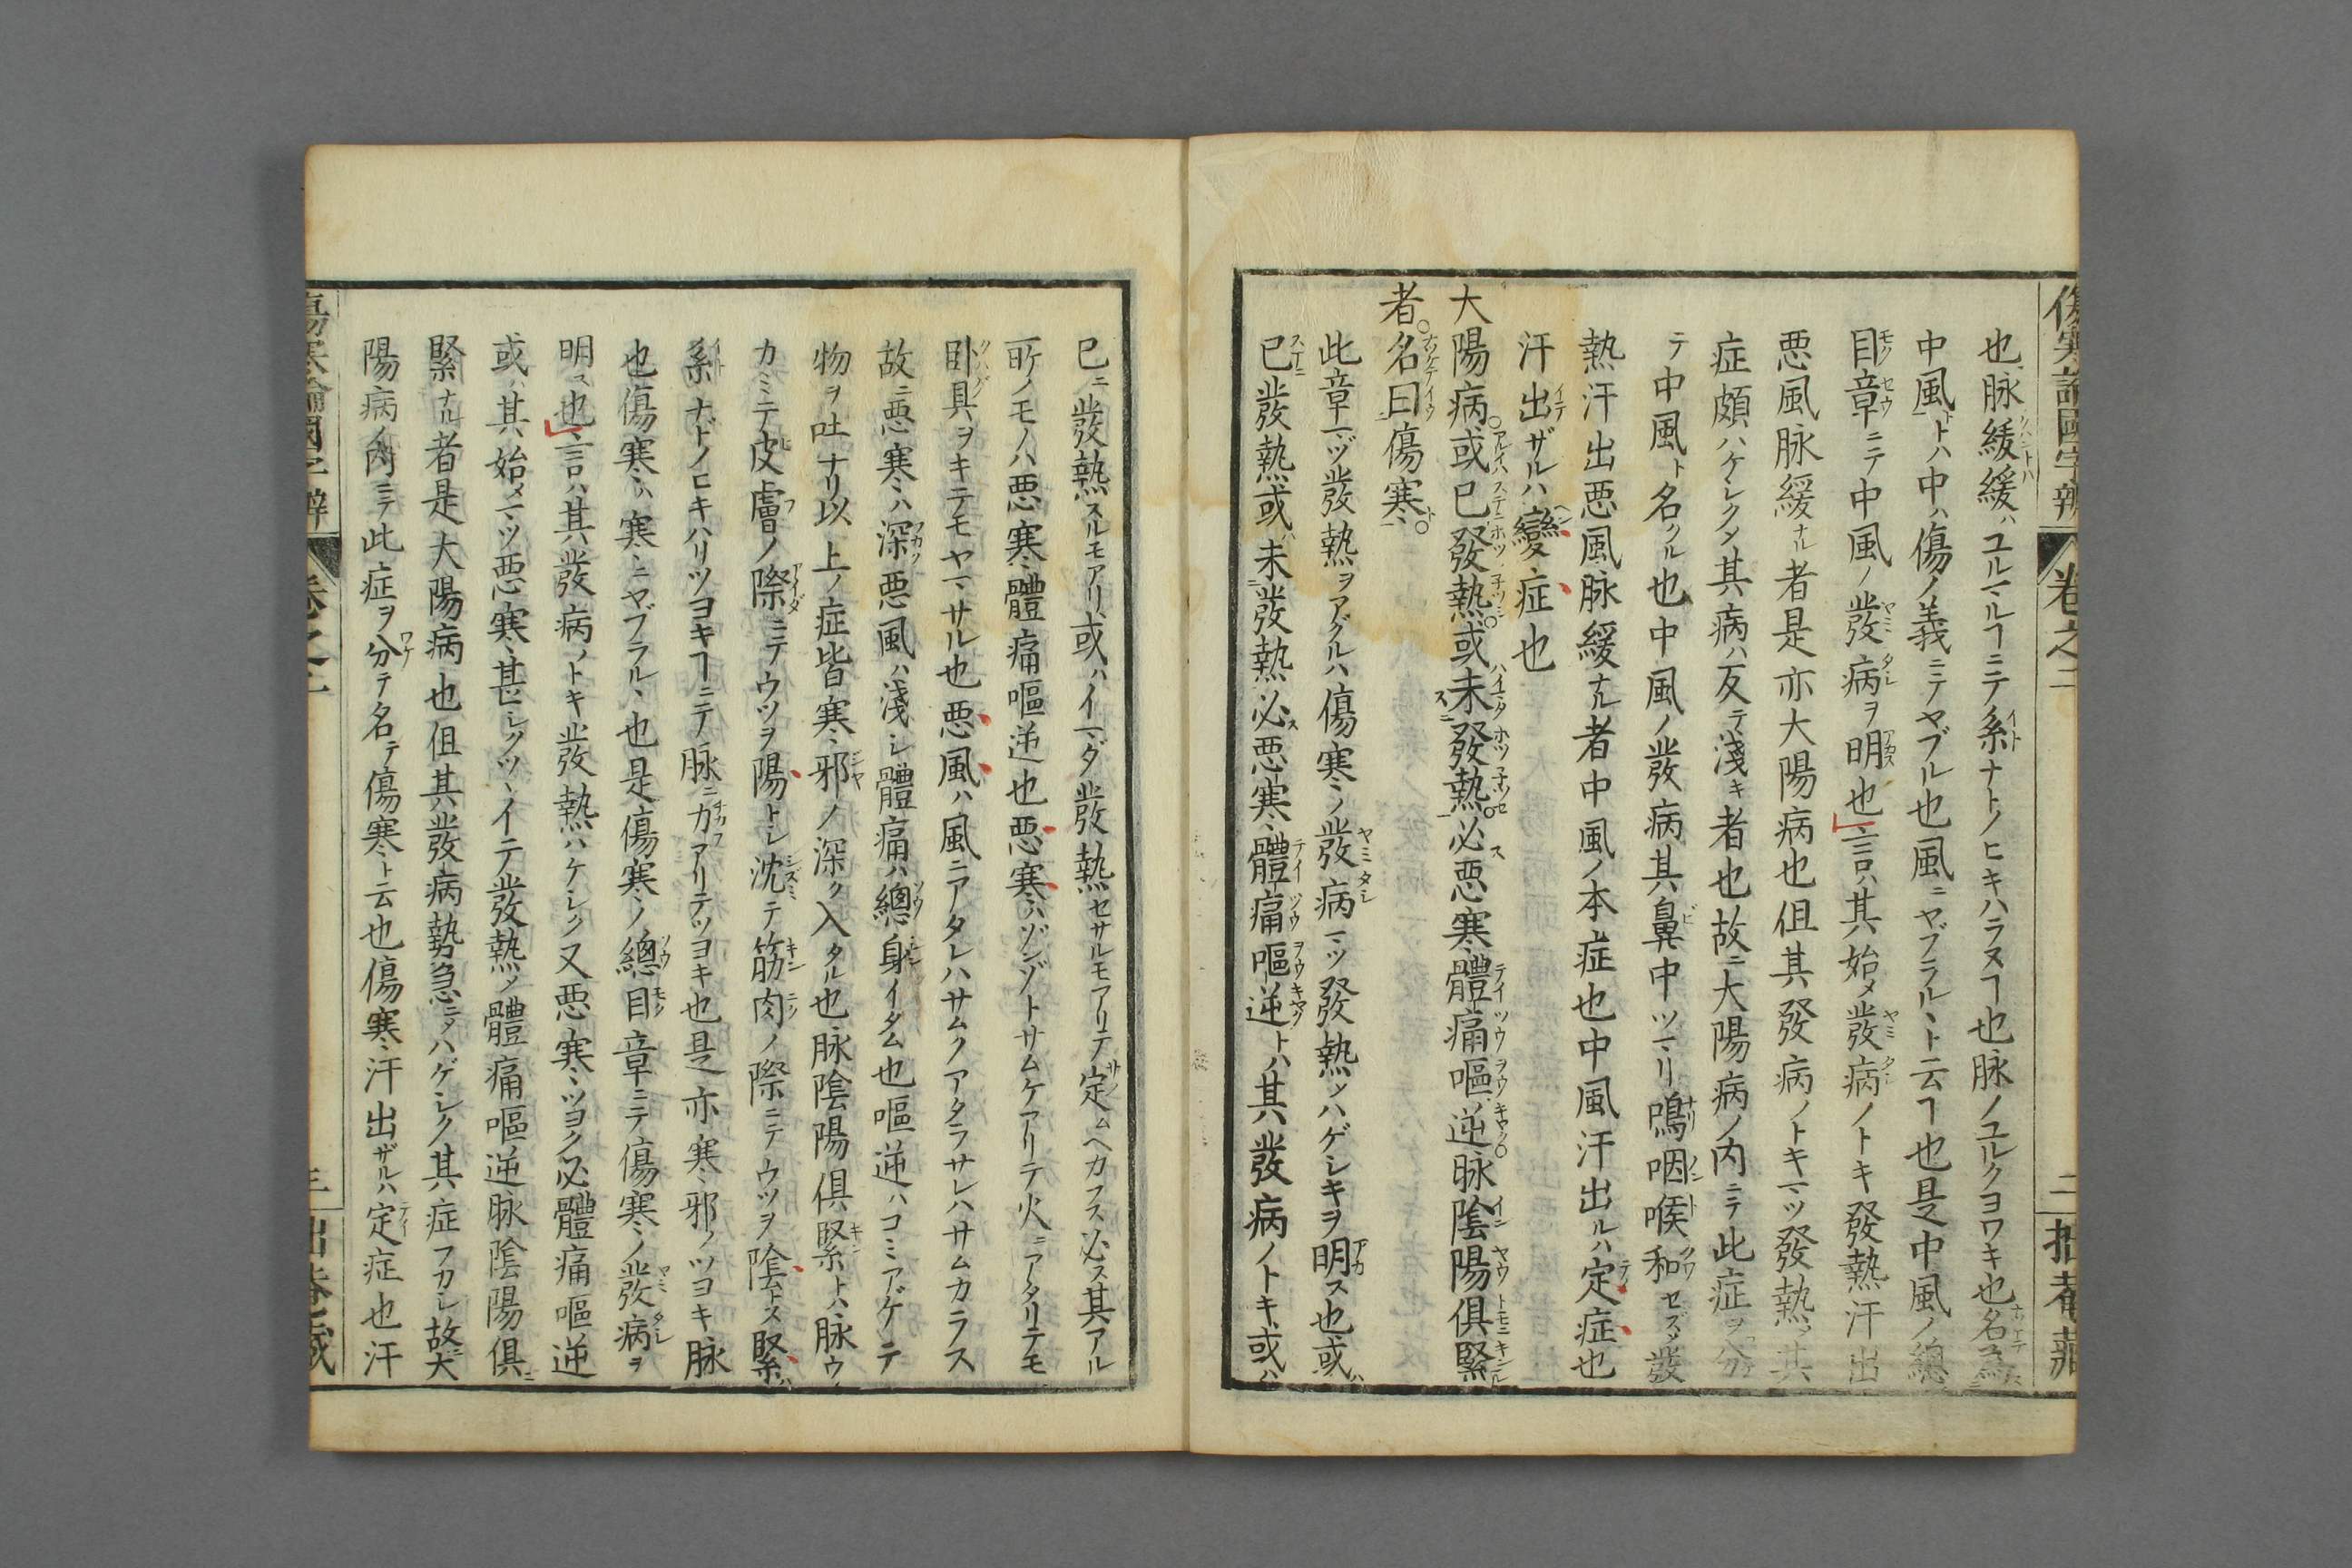 傷寒論國字辨 卷之二 二 拙菴藏
也脉緩緩ハユルマルヿニテ系ナトノヒキハラヌヿ也脉ノユルクヨワキ也名爲
中風トハ中ハ傷ノ義ニテヤブル也風ニヤブラルヽト云ヿ也是中風ノ總
目章ニテ中風ノ發病ヲ明也言ハ其始メ發病ノトキ發熱汗出
悪風脉緩ナル者是亦大陽病也但其發病ノトキマツ發熱シ其
症頗ハケシクメ其病ハ反テ淺キ者也故ニ大陽病ノ内ニテ此症ヲ分
テ中風ト名クル也中風ノ發病其鼻中ツマリ鳴咽喉和セズメ發
熱汗出悪風脉緩ナル者中風ノ本症也中風汗出ルハ定症也
汗出ザルハ變症也
大陽病或已發熱或未發熱必悪寒體痛嘔逆脉陰陽俱緊
者名曰傷寒
此章マヅ發熱ヲアグルハ傷寒ノ發病マツ發熱メハゲシキヲ明ス也或ハ
已發熱或ハ未發熱必悪寒體痛嘔逆トハ其發病ノトキ或ハ
已ニ發熱スルモアリ或ハイマダ發熱セサルモアリテ定ムヘカラス必ス其アル
所ノモノハ悪寒體痛嘔逆也悪寒ハゾンゾトサムケアリテ火ニアタリテモ
臥具ヲキテモヤマサル也悪風ハ風ニアタレハサムクアタラサレハサムカラス
故ニ悪寒ハ深悪風ハ淺シ體痛ハ總身イタム也嘔逆ハコミアゲテ
物ヲ吐ナリ以上ノ症皆寒邪ノ深ク入タル也脉陰陽俱緊トハ脉ウ
カミテ皮膚ノ際ニテウツヲ陽トシ沈テ筋肉ノ際ニテウツヲ陰トス緊ハ
系ナドノヒキハリツヨキヿニテ脉ニカアリテツヨキ也是亦寒邪ノツヨキ脉
也傷寒ハ寒ニヤブラルヽ也是傷寒ノ總目章ニテ傷寒ノ發病ヲ
明ス也言ハ其發病ノトキ發熱ハケシク又悪寒ツヨク必體痛嘔逆
或ハ其始メマツ悪寒甚シクツヽイテ發熱メ體痛嘔逆脉陰陽俱ニ
緊ナル者是大陽病也但其發病勢急ニメハゲシク其症フカシ故大
陽病ノ内ニテ此症ヲ分テ名テ傷寒ト云也傷寒汗出ザルハ定症也汗
傷寒論國字辨 卷之二 三 拙菴藏